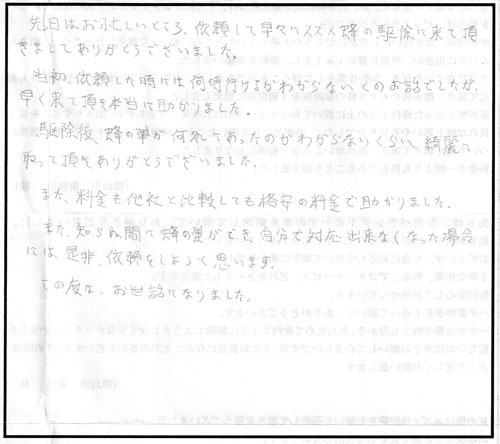 先日はお忙しいところ、依頼して早々にスズメ蜂の駆除に来て頂
きましてありがとうございました。
当初、依頼した時には何時行けるかわからないとのお話でしたが、
早く来て頂き本当に助かりました。
駆除後、蜂の巣が何処にあったのかわからないくらい、綺麗に
取って頂きありがとうございました。
また、料金も他社と比較しても格安の料金で助かりました。
また、知らぬ間に蜂の巣ができ、自分で対応出来なくなった場合
には、是非、依頼をしようと思います。
この度は、お世話になりました。